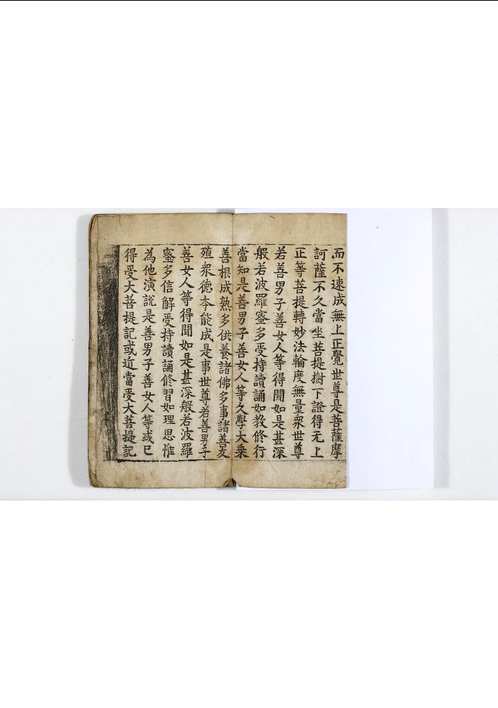 而不速成無上正覺世尊是菩薩摩
訶薩不久當坐菩提樹下證得无上
正等菩提轉妙法輪度無量衆世尊
若善男子善女人等得聞如是甚深
般若波羅蜜多受持讀誦如教修行
當知是善男子善女人等久學大乘
善根成熟多供養諸佛多事諸善友
殖衆德本能成是事世尊若善男子
善女人等得聞如是甚深般若波羅
蜜多信解受持讀誦修習如理思惟
為他演說是善男子善女人等或已
得受大菩提記或近當受大菩提記